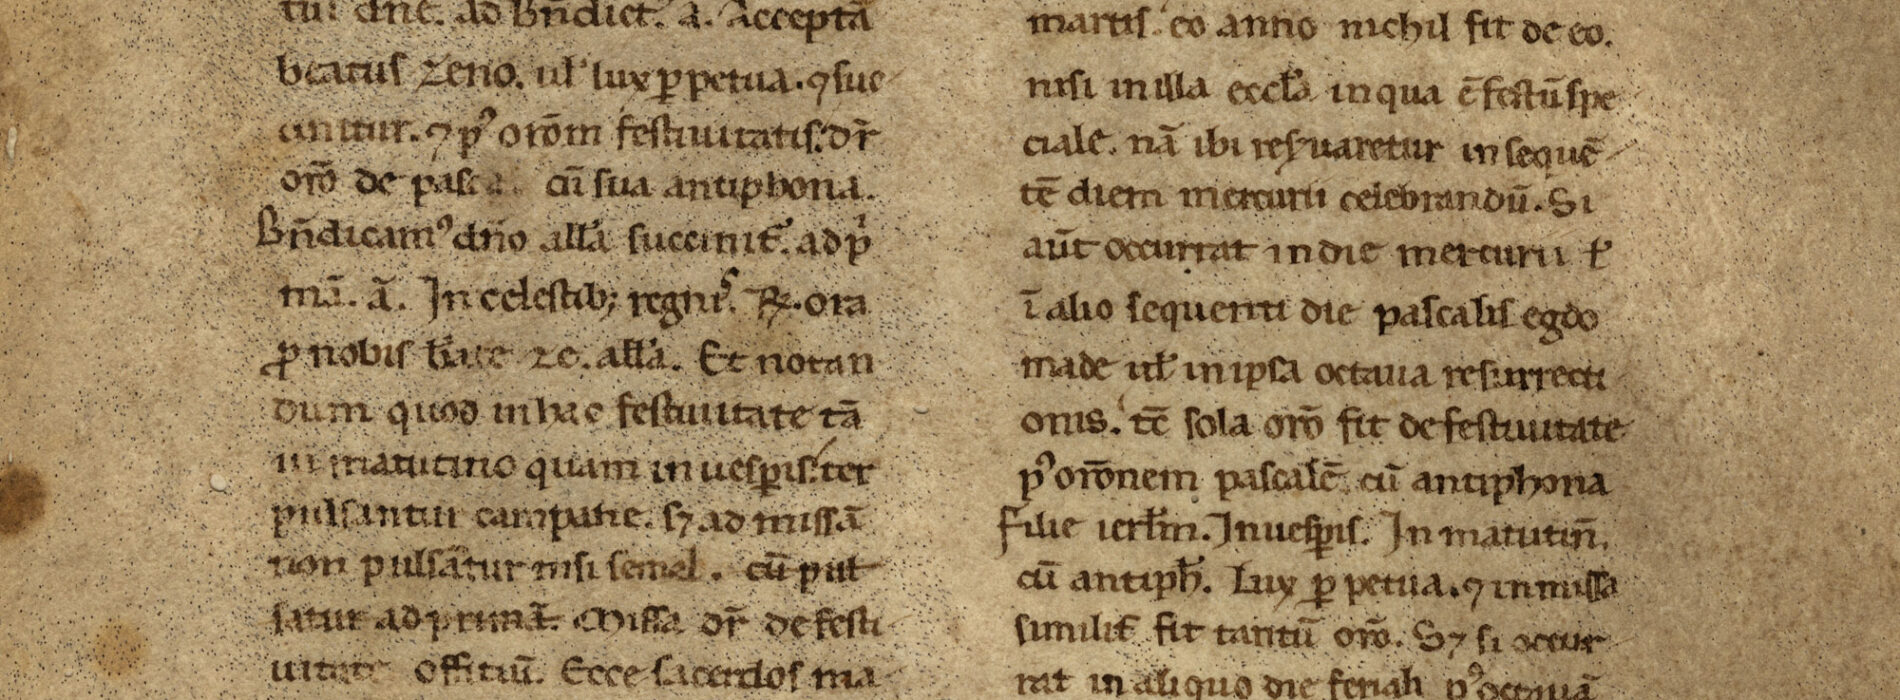 tur dnē. ad Bn̄dict. a. Acceptā
beatus zeno. ul' lux ꝑpetua. ⁊ suc
cinitur. ⁊ pꝰ orōm festiuitatis. dr̄
orō de pasca cū sua antiphona.
Bn̄dicamꝰ dn̄o all'a succinit̄. ad pⁱ
mā. ā. In celestibꝫ regnis. ℞. ora
ꝓ nobis b̄ate zc. all'a. Et notan
dum quod in hac festiuitate tā
in matutino quam in uesꝑis. ter
pulsantur campane. s⁊ ad missā
non pulsātur nisi semel. cū pul
satur ad primā. Missa dr̄ de festi
uitate offitiū. Ecce sacerdos ma
martis. eo anno nichil fit de eo.
nisi in illa eccl'a in qua ē festū spe
ciale. nā ibi reseruaretur in sequē
tē diem mercurii celebrandū. Si
aūt occurrat in die mercurii ł
ī alio sequenti die pascalis egdo
made ul' in ipsa octaua resurrecti
onis. tē sola orō fit de festiuitate
pꝰ orōnem pascalē. cū antiphona
Filie ierl'm. In uesꝑis. In matutin̄.
cū antiph̄. Lux ꝑpetua. ⁊ in missa
similit̄ fit tantū orō. S⁊ si occur
rat in aliquo die feriali pꝰ octauā